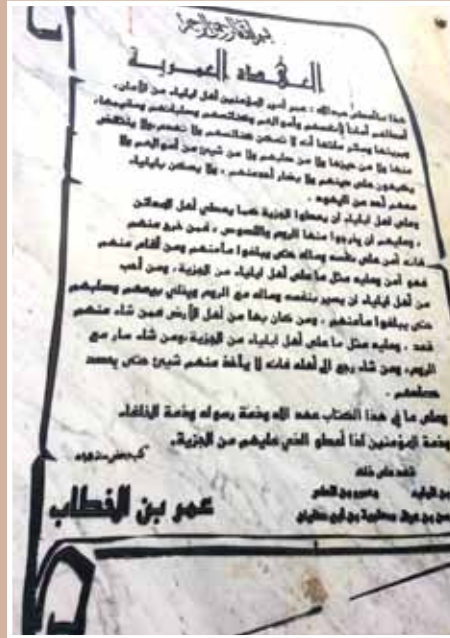 بسم الله الرحمن الرحيم
العهدة العمرية
هذا ما أعطى عبد الله : عمر أمير المؤمنين أهل ايلياء من الأمان،
أعطاهم أماناً لأنفسهم وأموالهم وكنائسهم وصلبانهم وسقيمها
وبريئها وسائر ملتها أنه لا تسكن كنائسهم ولا تهدم ولا ينتقض
منها ولا من حيزها ولا من صليبهم ولا من شيئ من أموالهم ولا
يكرهون على دينهم ولا يضار أحد منهم ، ولا يسكن بايلياء
معهم أحد من اليهود .
وعلى أهل ايلياء ان يعطوا الجزية كما يعطي أهل المدائن
، وعليهم ان يخرجوا منها الروم واللصوص ، فمن خرج منهم
فانه آمن على نفسه وماله حتى يبلغوا مأمنهم ومن أقام منهم
فهو آمن وعليه مثل ما على أهل ايلياء من الجزية، ومن أحب
من أهل ايلياء ان يسير بنفسه وماله مع الروم ويخلي بيعهم وصلبهم
حتى يبلغوا مأمنهم ، ومن كان بها من أهل الأرض فمن شاء منهم
قعد ، وعليه مثل ما على أهل ايلياء من الجزية ،ومن شاء سار مع
الروم، ومن شاء رجع الى أهله فانه لا يأخذ منهم شيئ حتى يحصد
حصادهم .
وعلى ما في هذا الكتاب عهد الله وذمة رسوله وذمة الخلفاء
وذمة المؤمنين اذا أعطو الذي عليهم من الجزية.
شهد على ذلك
بن الوليد وعمرو بن العاص
بن عوف معاوية بن أبي سفيان
عمر بن الخطاب